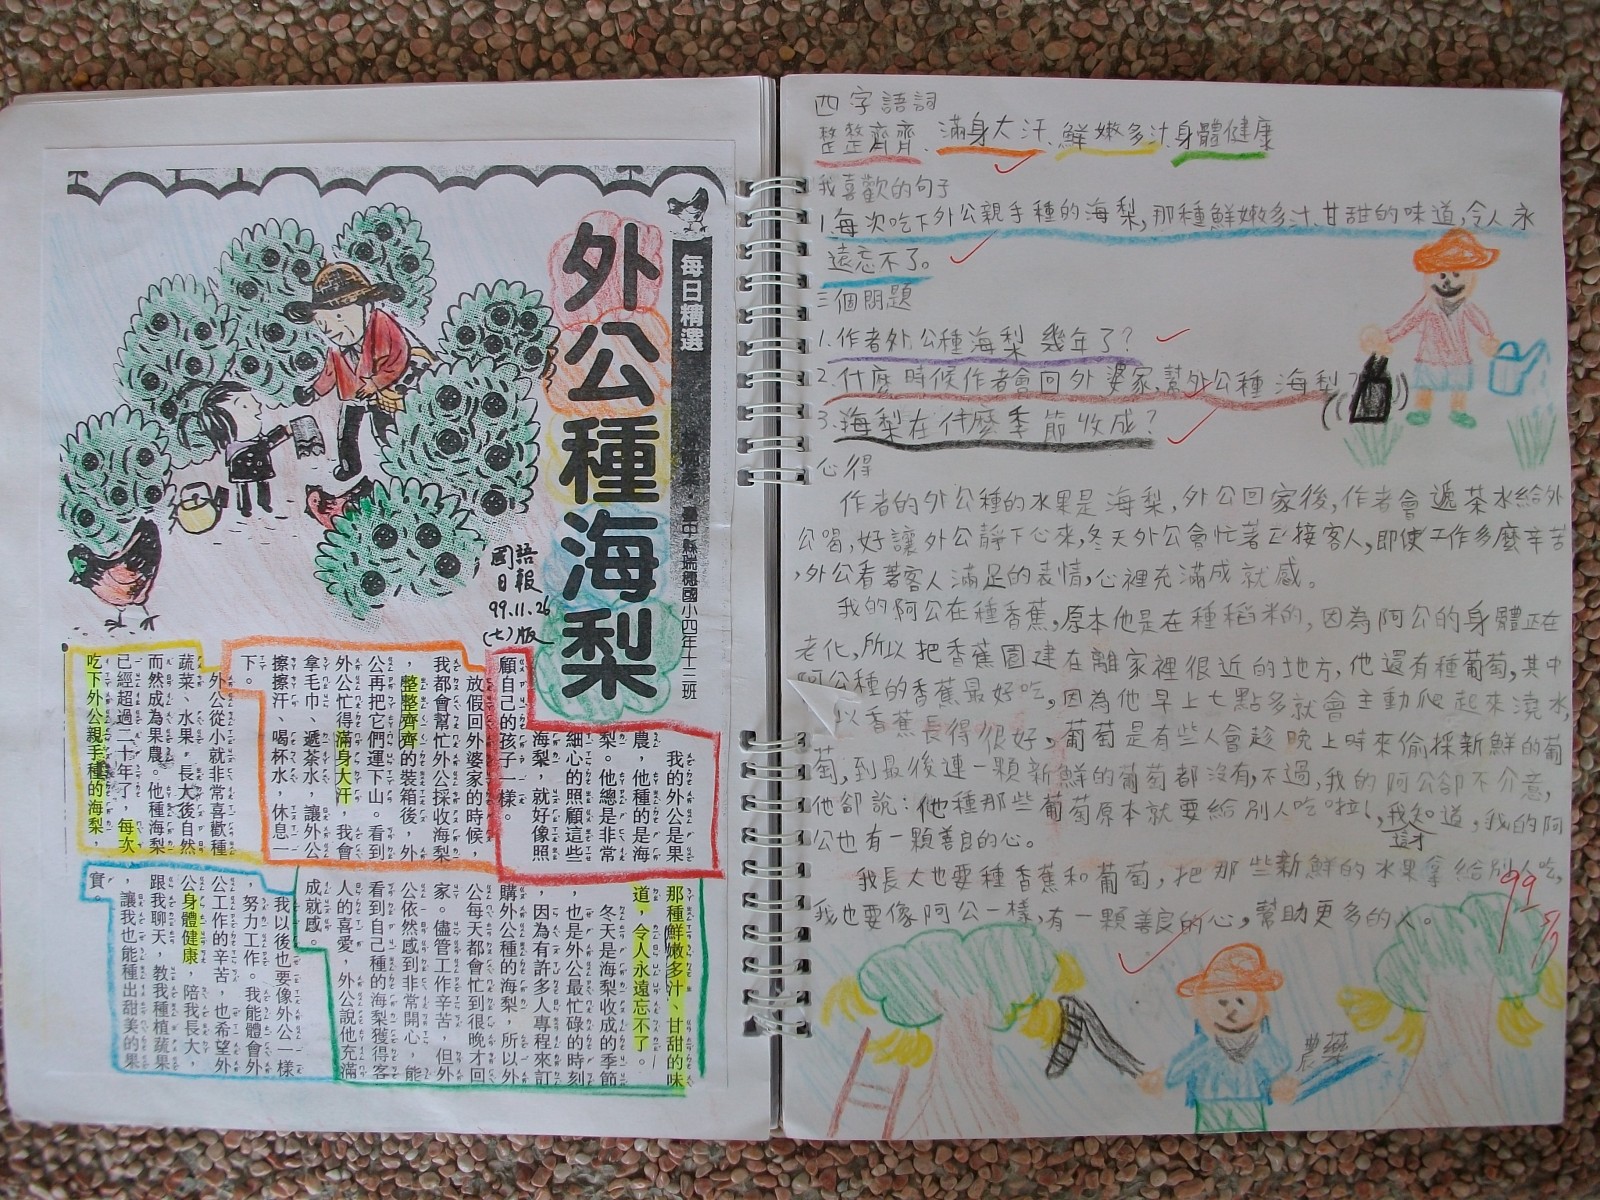 每日精選
外公種海梨
瑞穗國小四年十二班
國語
日報
99.11.26
(七)版
我的外公是果
農，他種的是海
梨。他總是非常
細心的照顧這些
海梨，就好像照
顧自己的孩子一樣。
放假回外婆家的時候，
我都會幫忙外公採收海梨
，整整齊齊的裝箱後，外
公再把它們運下山。看到
外公忙得滿身大汗，我會
拿毛巾、遞茶水，讓外公
擦擦汗、喝杯水，休息一
下。
外公從小就非常喜歡種
蔬菜、水果，長大後自然
而然成為果農。他種海梨
已經超過二十年了，每次
吃下外公親手種的海梨，
那種鮮嫩多汁、甘甜的味
道，令人永遠忘不了。
冬天是海梨收成的季節
，也是外公最忙碌的時刻
，因為有許多人專程來訂
購外公種的海梨，所以外
公每天都會忙到很晚才回
家。儘管工作辛苦，但外
公依然感到非常開心，能
看到自己種的海梨獲得客
人的喜愛，外公說他充滿
成就感。
我以後也要像外公一樣
，努力工作。我能體會外
公工作的辛苦，也希望外
公身體健康，陪我長大，
跟我聊天，教我種植蔬果
，讓我也能種出甜美的果
實。
四字語詞
整整齊齊、滿身大汗、鮮嫩多汁、身體健康
我喜歡的句子
1.每次吃下外公親手種的海梨，那種鮮嫩多汁、甘甜的味道，令人永
遠忘不了。
三個問題
1.作者外公種海梨幾年了？
2.什麼時候作者會回外婆家，幫外公種海梨？
3.海梨在什麼季節收成？
心得
作者的外公種的水果是海梨，外公回家後，作者會遞茶水給外
公喝，好讓外公靜下心來，冬天外公會忙著迎接客人，即使工作多麼辛苦
，外公看著客人滿足的表情，心裡充滿成就感。
我的阿公在種香蕉，原本他是在種稻米的，因為阿公的身體正在
老化，所以把香蕉園建在離家裡很近的地方，他還有種葡萄，其中
阿公種的香蕉最好吃，因為他早上七點多就會主動爬起來澆水，
以香蕉長得很好，葡萄是有些人會趁晚上時來偷採新鮮的葡
萄，到最後連一顆新鮮的葡萄都沒有，不過，我的阿公卻不介意，
他卻說：他種那些葡萄原本就要給別人吃啦！，我才知道，我的阿
公也有一顆善良的心。
我長大也要種香蕉和葡萄，把那些新鮮的水果拿給別人吃，
我也要像阿公一樣，有一顆善良的心，幫助更多的人。
99
農藥